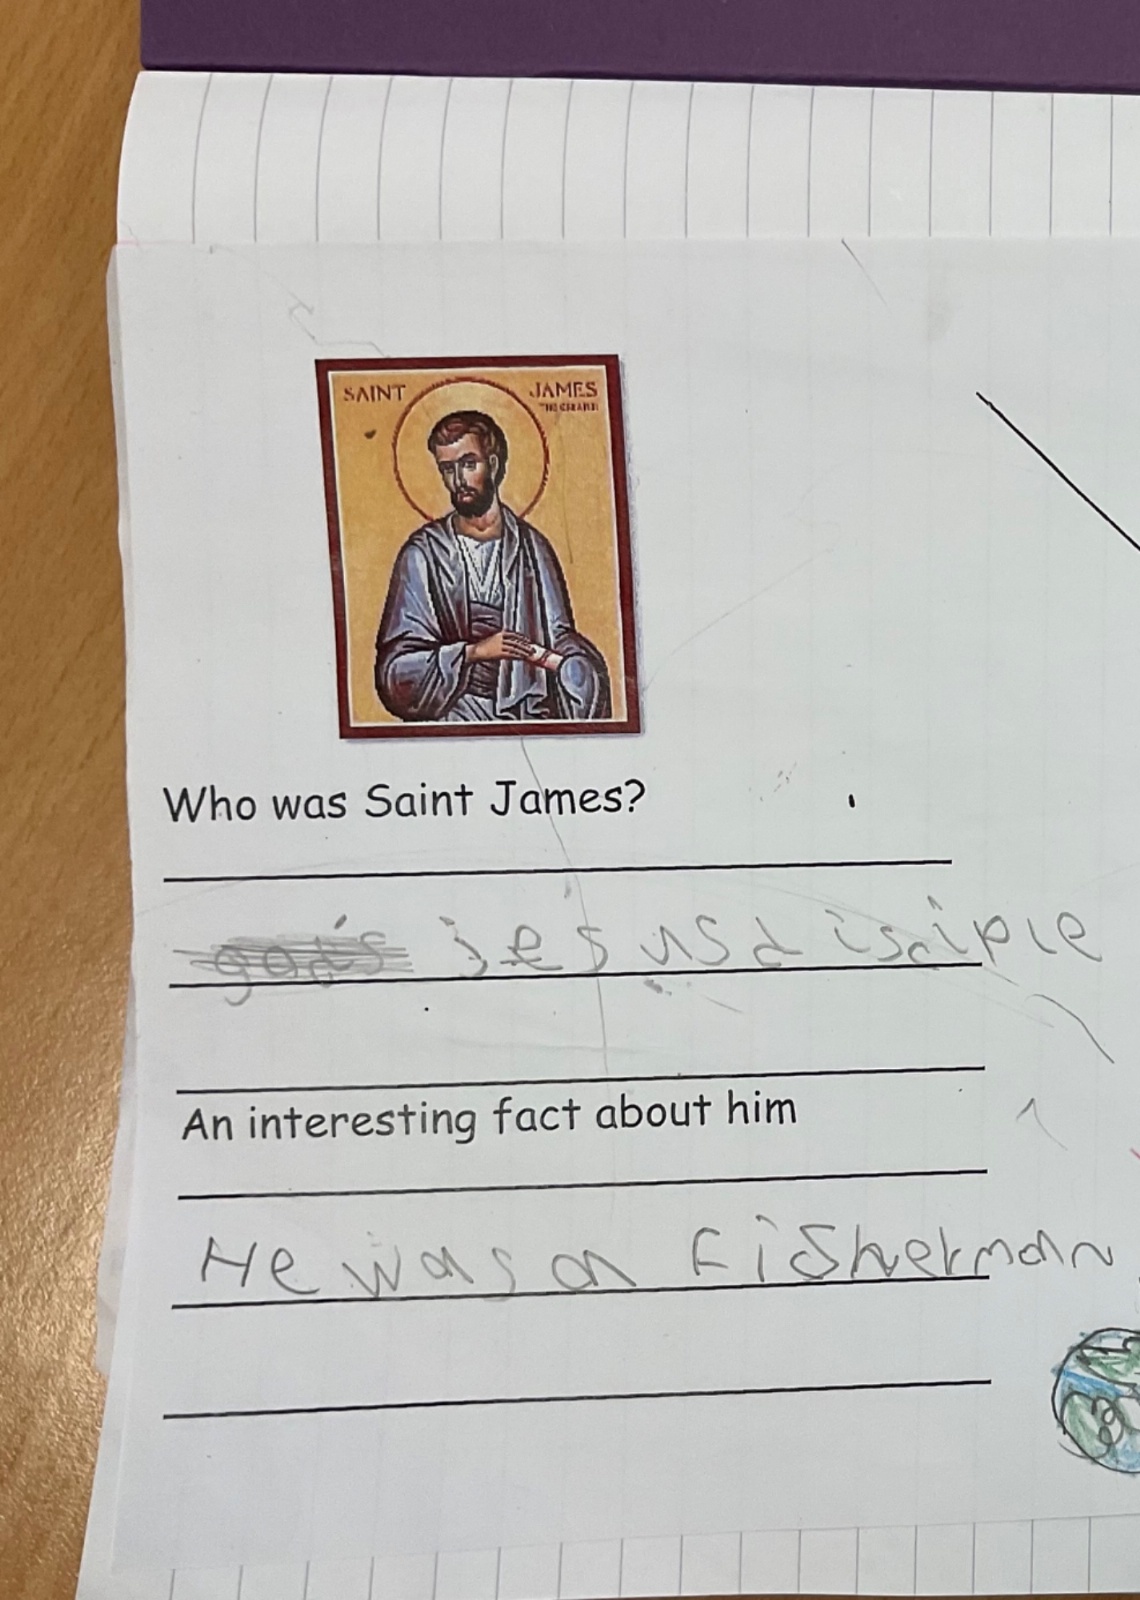 SAINT JAMES
THE GREATER
Who was Saint James?
god's jesus disciple
An interesting fact about him
He was a fisherman